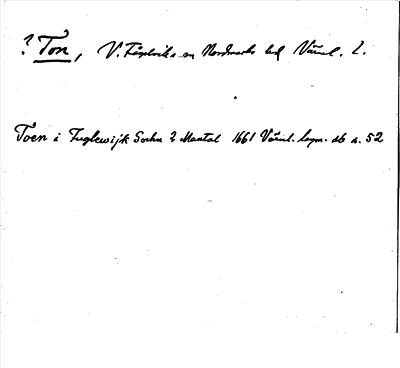 ? Ton, V. Fågelviks sn Nordmarks hd Värml. l.
Toen i Fuglewijk Sochn 2 Mantal 1661 Värml. lägm. db s. 52